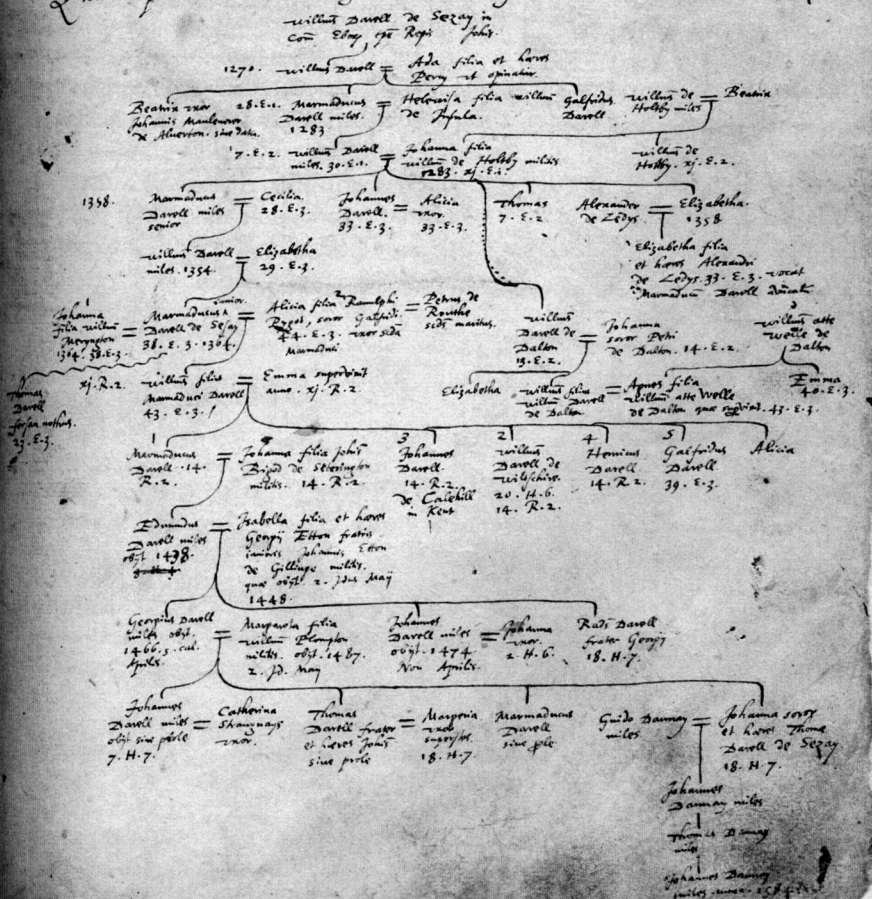 Willms Darell de Sezay in
Com Ebor tpe Regis Johis.
1270. Willms Darell = Ada filia et hæres
Percy ut opinatur.
Beatrix uxor
Johannis Mauleverer
de Alverton. sine data.
28.E.1. Marmaducus
Darell miles.
1283
Helewisa filia willmi
de Insula.
Galfridus
Darell
Willms de
Holtby miles = Beatrix
7.E.2. Willms Darell
miles. 30.E.1.
Johanna filia
willmi de Holtby militis
1283. xj.E.1.
Willms de
Holtby. xj.E.2.
1358. Marmaducus
Darell miles
senior
Cecilia.
28.E.3.
Johannes
Darell.
33.E.3.
Alicia
uxor.
33.E.3.
Thomas
7.E.2.
Alexander
de Ledys.
Elizabetha.
1358
Willms Darell
miles. 1354.
Elizabetha
29.E.3.
Elizabetha filia
et hæres Alexandri
de Ledys. 33.E.3. vocat
Marmaducum Darell
Johanna
filia willmi
1364. 38.E.3.
junior.
Marmaducus
Darell de Sesay
38.E.3. 1364.
Alicia filia Ranulphi
Pygot, soror Galfridi
44.E.3. uxor
Marmaduci
Petrus de
Routhe
secds maritus.
Willms
Darell de
Dalton
13.E.2.
Johanna
soror Petri
de Dalton. 14.E.2.
Willms atte
welle de
Dalton
Thomas
Darell
forsan nothus.
23.E.3.
xj.R.2. Willms filius
Marmaduci Darell
43.E.3.
Emma supervixit
anno. xj.R.2.
Elizabetha
Willms filius
Willmi Darell
de Dalton
Agnes filia
willmi atte welle
de Dalton quæ 43.E.3.
Emma
40.E.3.
1
Marmaducus
Darell. 14.
R.2.
Johanna filia Johis
Bigod de Setterington
militis. 14.R.2.
3
Johannes
Darell.
14.R.2.
de Calehill
in Kent
2
Willms
Darell de
Wiltschire.
20.H.6.
14.R.2.
4
Henricus
Darell.
14.R.2.
5
Galfridus
Darell
39.E.3.
Alicia
Edmundus
Darell miles
obijt 1438.
Isabella filia et hæres
Georgij Etton fratris
junioris Johannis Etton
de Gillinge militis.
quæ obijt 2. Idus Maij
1448.
Georgius Darell
miles obijt.
1466. 5. cal.
Aprilis.
Margareta filia
willmi Plompton
militis. obijt. 1487.
2. Id. May
Johannes
Darell miles
obijt. 1474
Non Aprilis.
Johanna
uxor.
2.H.6.
Radus Darell
frater Georgij
18.H.7.
Johannes
Darell miles
obijt sine prole
7.H.7.
Catherina
Strangways
uxor.
Thomas
Darell frater
et hæres Johis
sine prole
Margeria
uxor
superstes.
18.H.7.
Marmaducus
Darell
sine ple
Guido Dawnay
miles
Johanna soror
et hæres Thome
Darell de Sezay
18.H.7.
Johannes
Dawnay miles
Thomas Dawnay
miles
Johannes Dawnay
miles